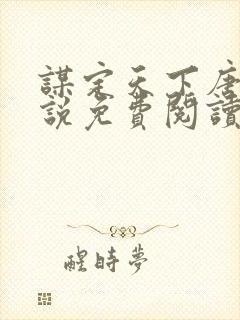 謀定天下唐
說免費閱讀
醒時夢